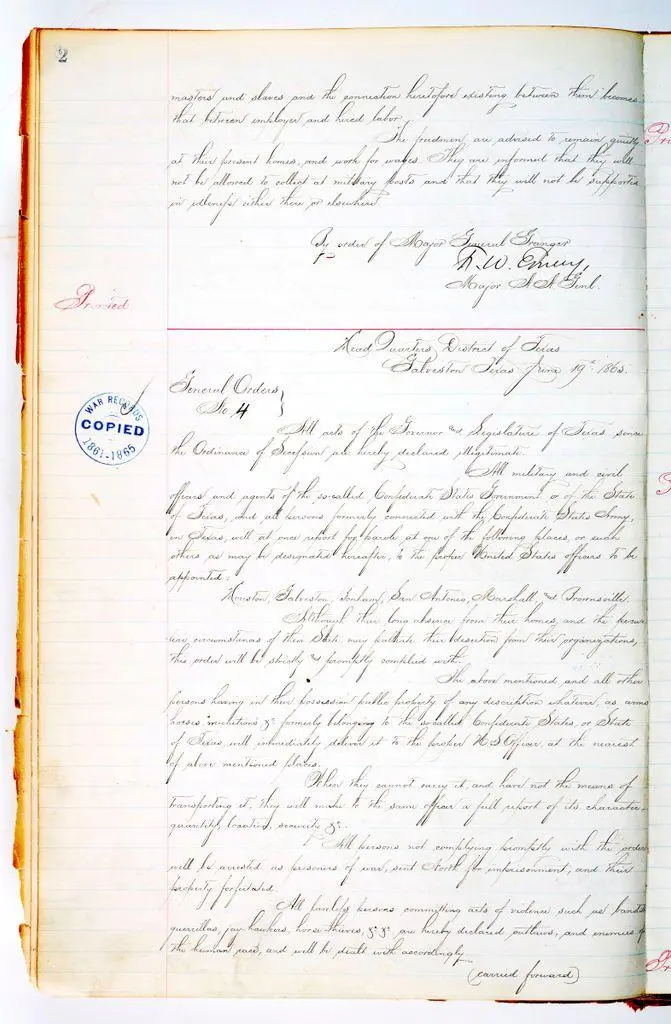 2
masters and slaves and the connection heretofore existing between them becomes
that between employer and hired labor.
The freedmen are advised to remain quietly
at their present homes, and work for wages. They are informed that they will
not be allowed to collect at military posts and that they will not be supported
in idleness either there or elsewhere.
By order of Major General Granger
F. W. Emery,
Major A A Genl.
Printed
Head Quarters District of Texas
Galveston Texas June 19th 1865.
General Orders
No. 4
All acts of the Governor and Legislature of Texas since
the Ordinance of Secession are hereby declared illegitimate.
All military and civil
officers and agents of the so-called Confederate States Government or of the State
of Texas, and all persons formerly connected with the Confederate States Army,
in Texas, will at one report for parole at one of the following places, or such
others as may be designated hereafter, to the proper United States officers to be
appointed:
Houston, Galveston, Bonham, San Antonio, Marshall and Brownsville.
Although their long absence from their homes, and the pecul
iar circumstances of their State may palliate their desertion from their organizations,
this order will be strictly and promptly complied with.
The above mentioned and all other
persons having in their possession public property of any description whatever, as arms
horses munitions &c formerly belonging to the so-called Confederate States, or State
of Texas, will immediately deliver it to the proper U S Officer, at the nearest
of above mentioned places.
When they cannot carry it, and have not the means of
transporting it, they will make to the same officer a full report of its character,
quantity, location, security &c.
All persons not complying promptly with this order
will be arrested as prisoners of war, sent North for imprisonment, and their
property forfeited.
All lawless persons committing acts of violence such as bandits
guerrillas, jay-hawkers, horse-thieves, &c &c are hereby declared outlaws, and enemies of
the human race, and will be dealt with accordingly.
(carried forward)
WAR RECORDS
COPIED
1861-1865